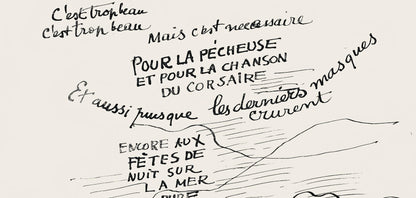 C'est trop beau
c'est trop beau
Mais c'est necessaire
POUR LA PÉCHEUSE
ET POUR LA CHANSON
DU CORSAIRE
Et aussi puisque les derniers masques
crurent
ENCORE AUX
FÈTES DE
NUIT SUR
LA MER
PURE